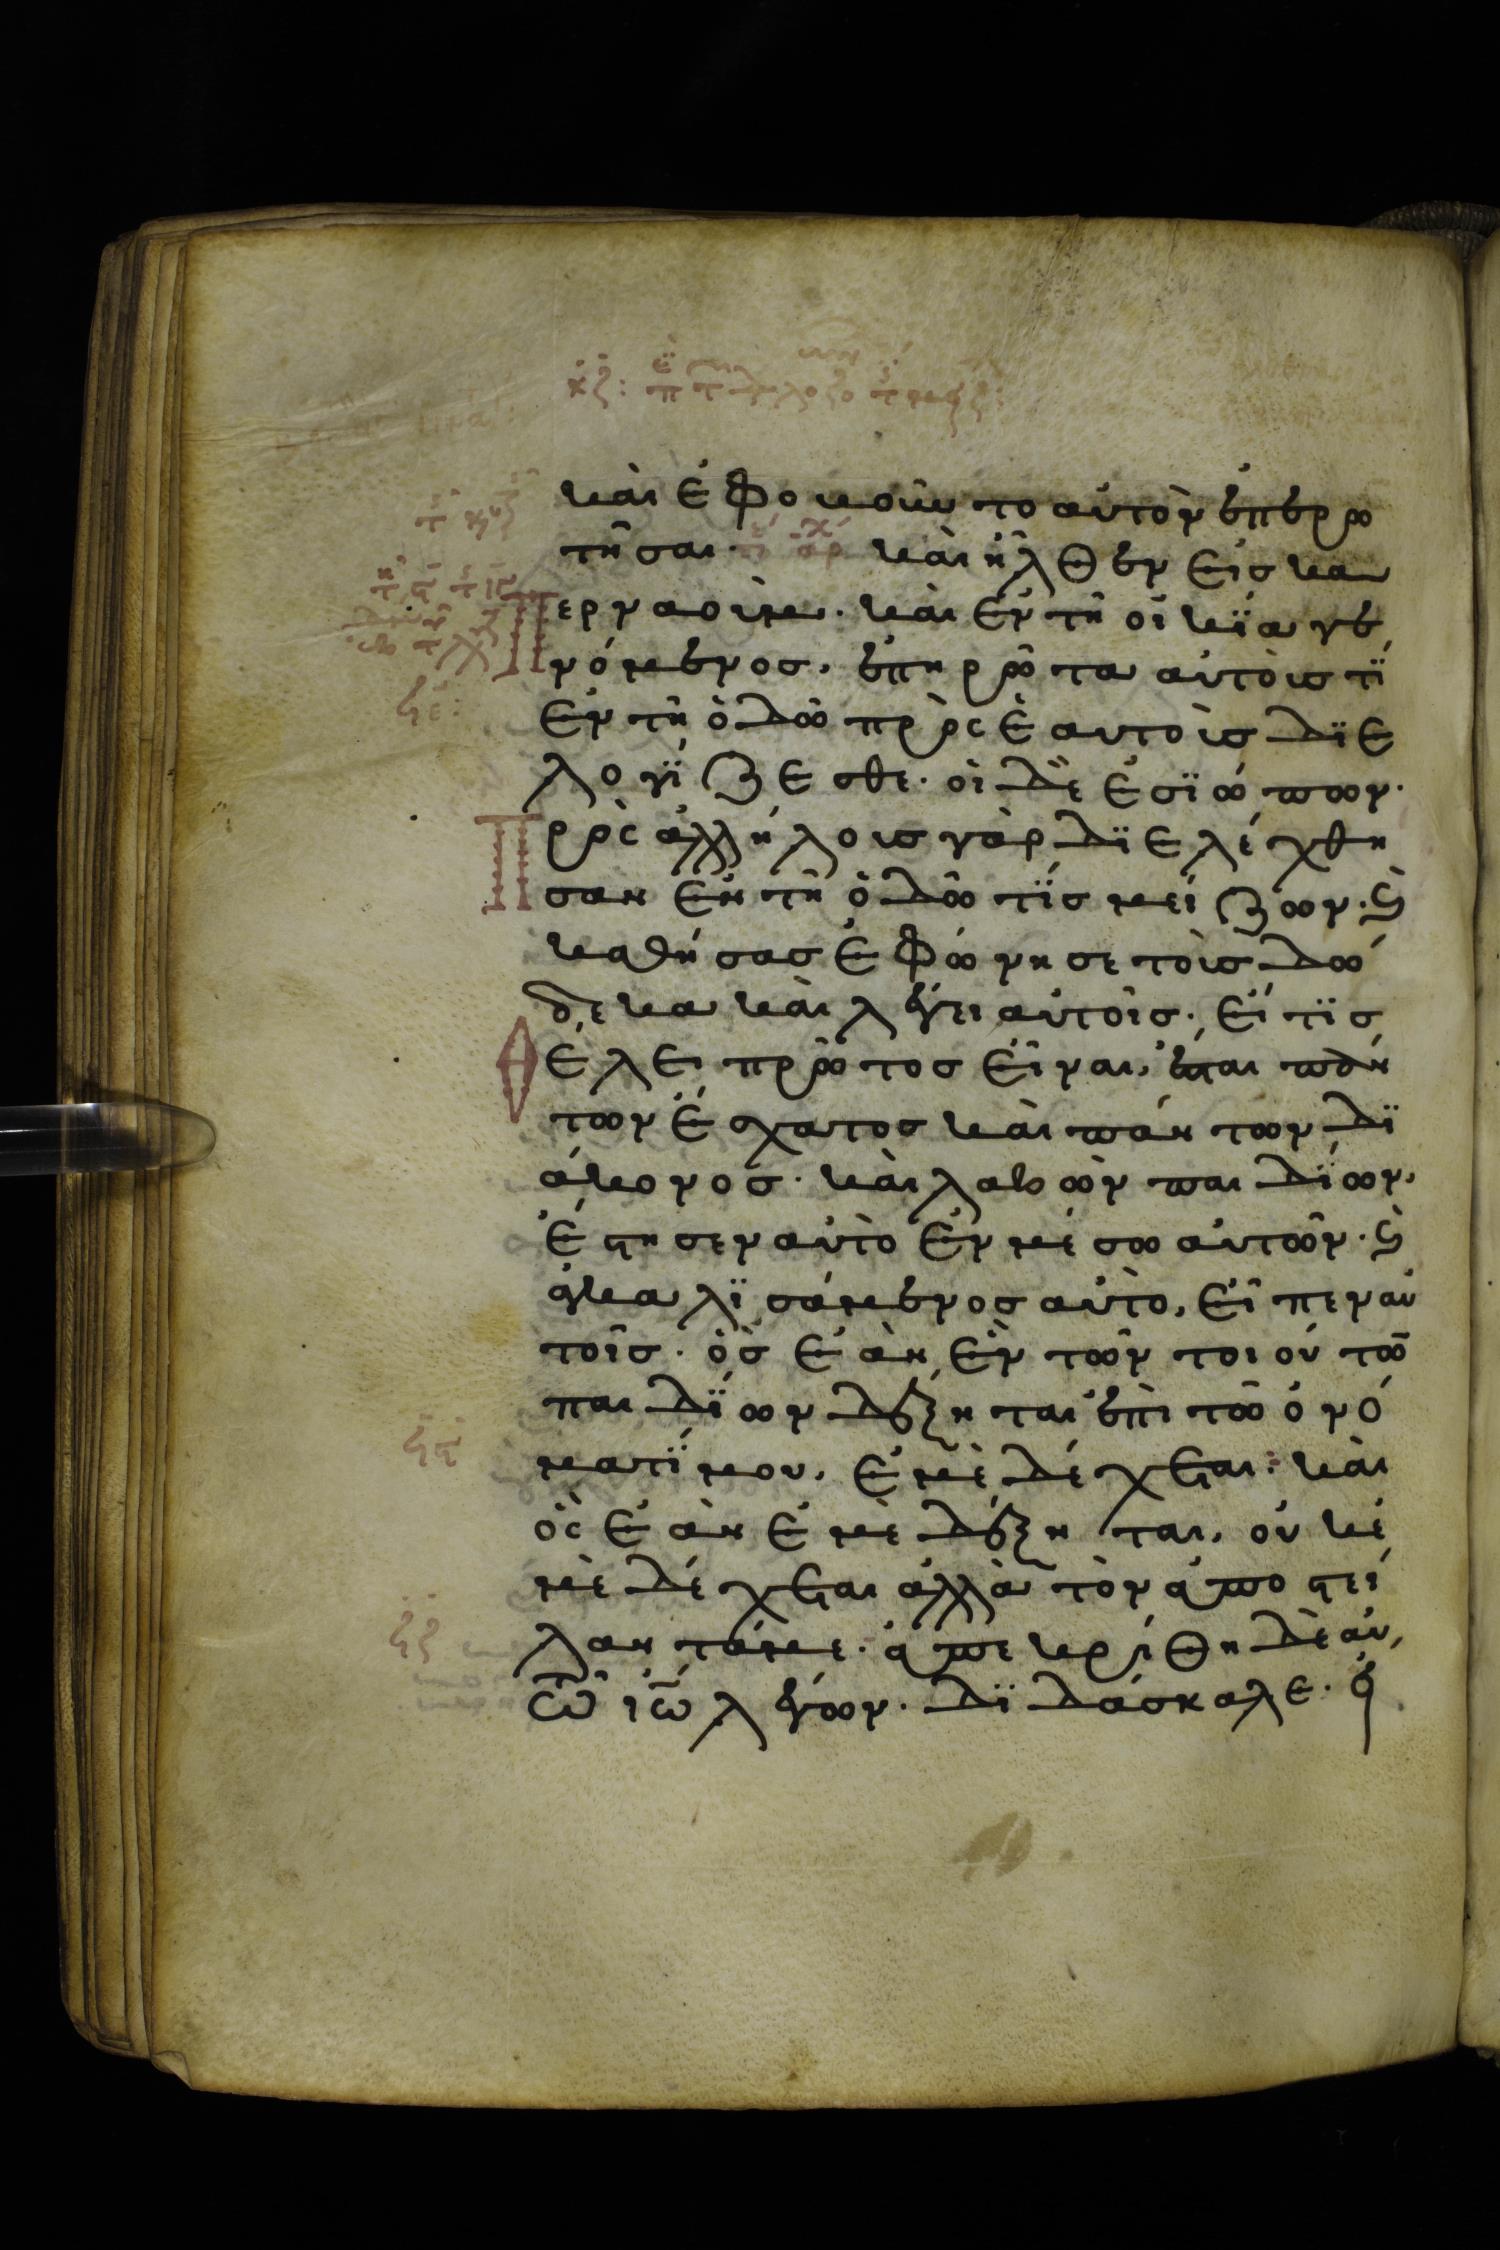 καὶ ἐφοβοῦντο αὐτὸν ἐπερω
τῆσαι· καὶ ἦλθεν εἰς κα
περναούμ· καὶ ἐν τῇ οἰκΐα γε
νόμενος, ἐπηρῶτα αὐτοὺς τΐ
ἐν τῇ ὁδῶ πρὸς ἑαυτοὺς δϊε
λογΐζεσθε· οἱ δὲ ἐσϊώπων·
Πρὸς ἀλλήλους γὰρ δϊελέχθη
σαν ἐν τῇ ὁδῶ τΐς μείζων· ϗ
καθήσας ἐφώνησε τοὺς δώ
δεκα καὶ λέγει αὐτοῖς· εἴ τϊς
θέλει πρῶτος εἶναι, ἔσται πάν
των ἔσχατος καὶ πάντων δϊ
άκονος· καὶ λαβὼν παιδΐον,
ἔστησεν αὐτὸ ἐν μέσω αὐτῶν· ϗ
ἀγκαλϊσάμενος αὐτὸ, εἶπεν αὐ
τοῖς· ὃς ἐὰν ἓν τῶν τοιούτω̄
παιδΐων δέξηται ἐπὶ τῶ ὀνό
ματΐ μου, ἐμὲ δέχεται: καὶ
ὃς ἐὰν ἐμὲ δέξηται, οὐκ ἐ
μὲ δέχεται ἀλλὰ τὸν ἀποστεί
λαντά με· ἀπεκρίθη δὲ αὐ
τῶ ἰω̄ λέγων· δϊδάσκαλε· εἴ
ϟε:
ϟϛ
ϟζ